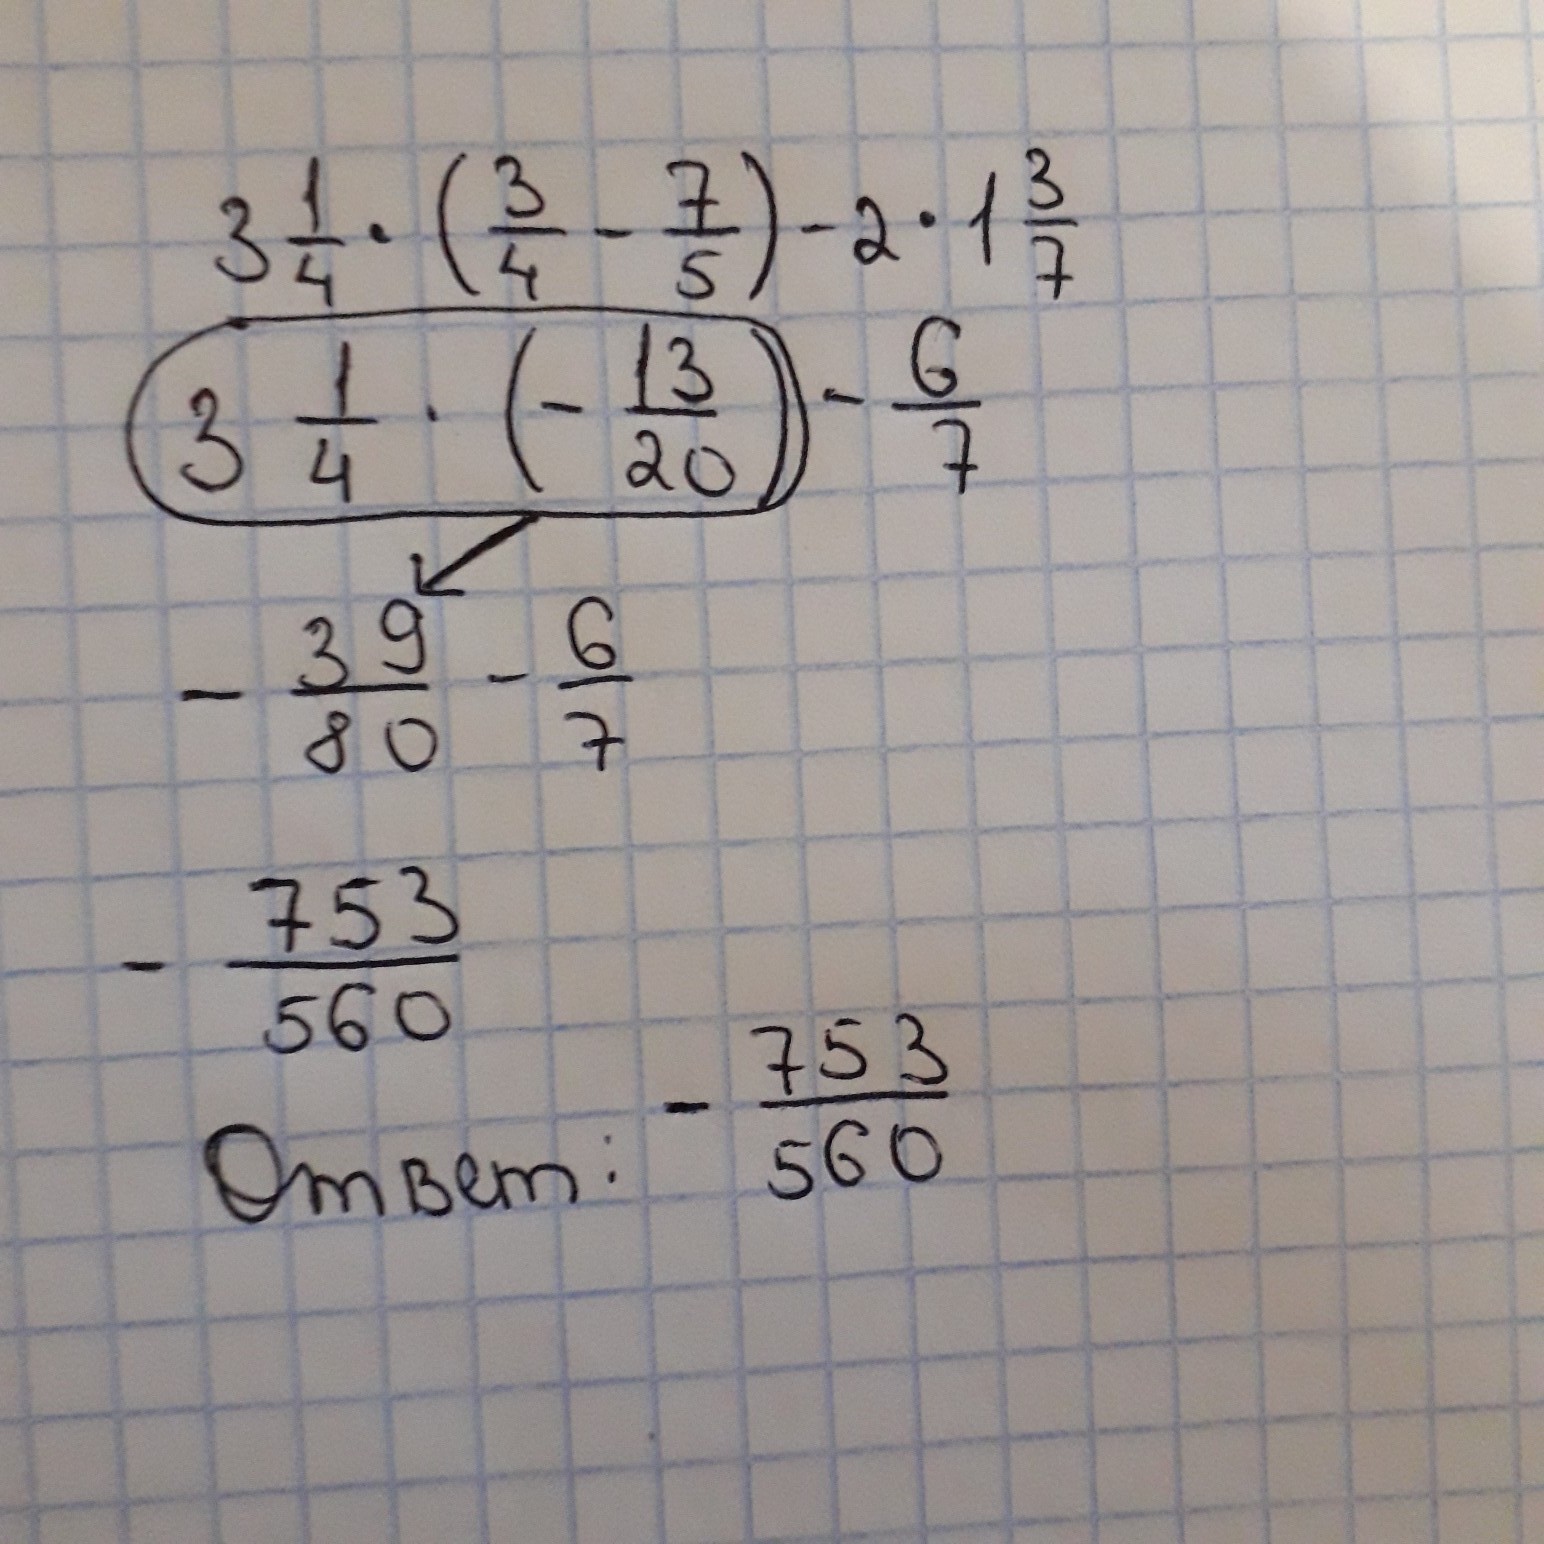 3 1/4 · (3/4 - 7/5) - 2 · 1 3/7
3 1/4 · (- 13/20) - 6/7
- 39/80 - 6/7
- 753/560
Ответ: - 753/560